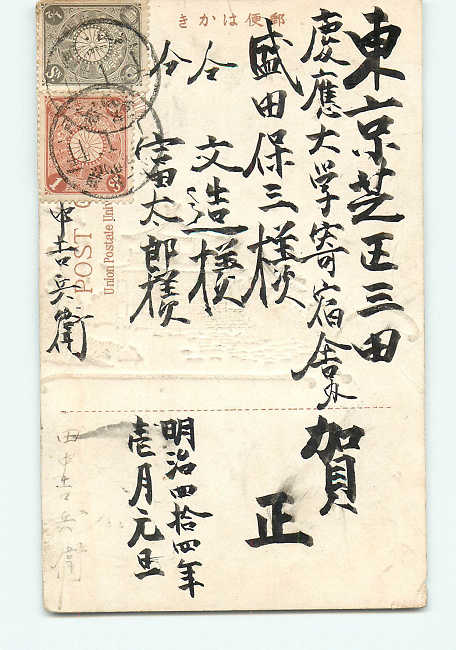 郵便はかき
東京芝区三田
慶應大学寄宿舎
盛田保三様
仝 文造様
仝 富太郎様
中吉兵衛
賀
正
明治四拾四年
壱月元旦
田中吉兵衛
POST
Union Postale Univ